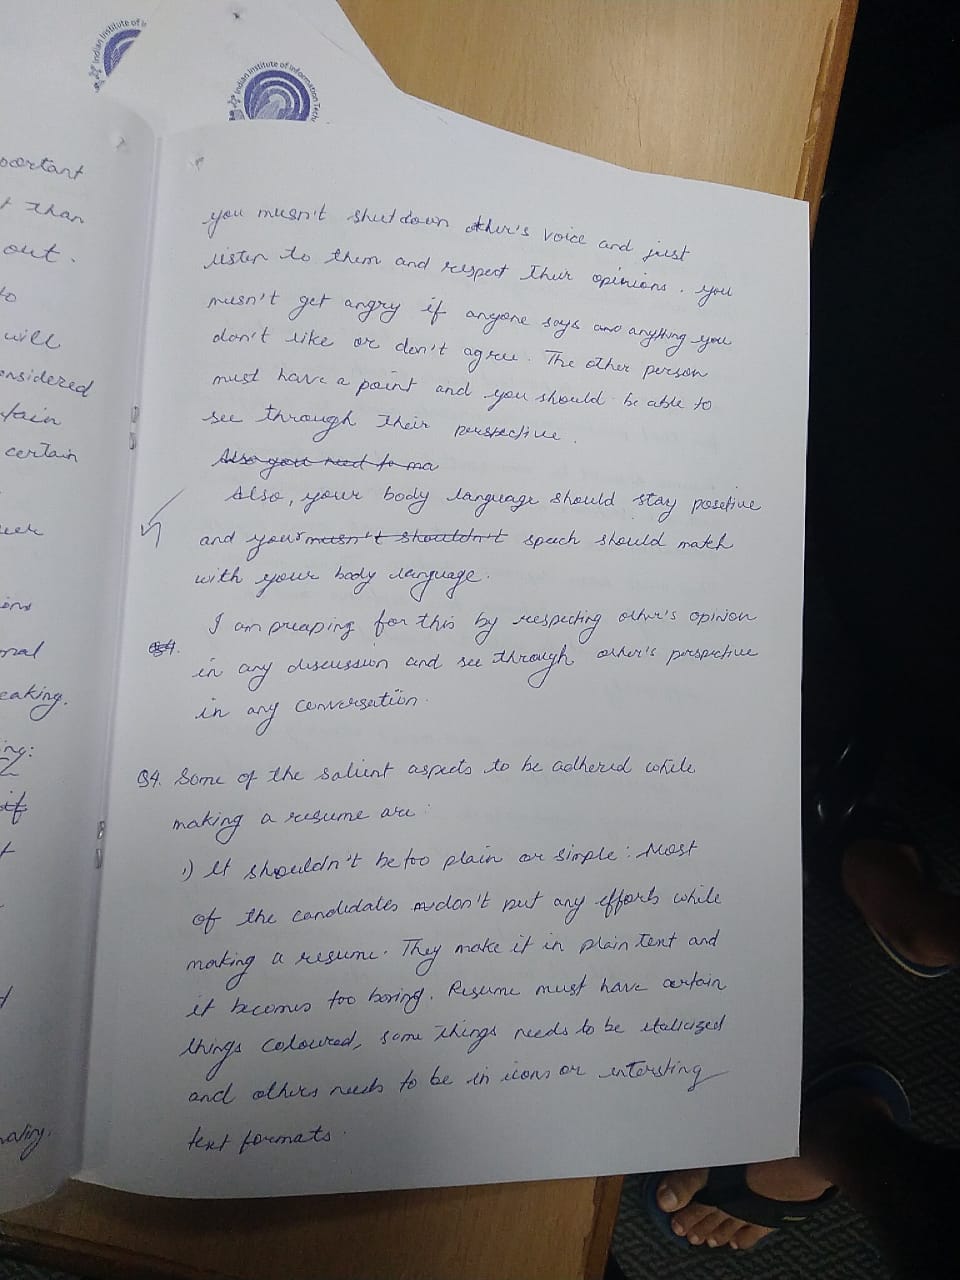 Indian Institute of I
Indian Institute of Information Techn
portant
t than
out.
to
will
onsidered
tain
certain
eer
ions
onal
eaking.
ing:
if
t
d
nality.
you musn't shutdown other's voice and just
listen to them and respect their opinions. you
musn't get angry if anyone says anything you
don't like or don't agree. The other person
must have a point and you should be able to
see through their perspective.
Also you need to ma
Also, your body language should stay posetive
and your musn't shouldn't speach should match
with your body language.
I am preaping for this by respecting other's opinion
in any discussion and see through other's perspective
in any conversation.
Q4. Some of the salient aspects to be adhered while
making a resume are:
1) It shouldn't be too plain or simple: Most
of the candidates don't put any efforts while
making a resume. They make it in plain text and
it becomes too boring. Resume must have certain
things coloured, some things needs to be italicized
and others needs to be in icons or intersting
text formats.